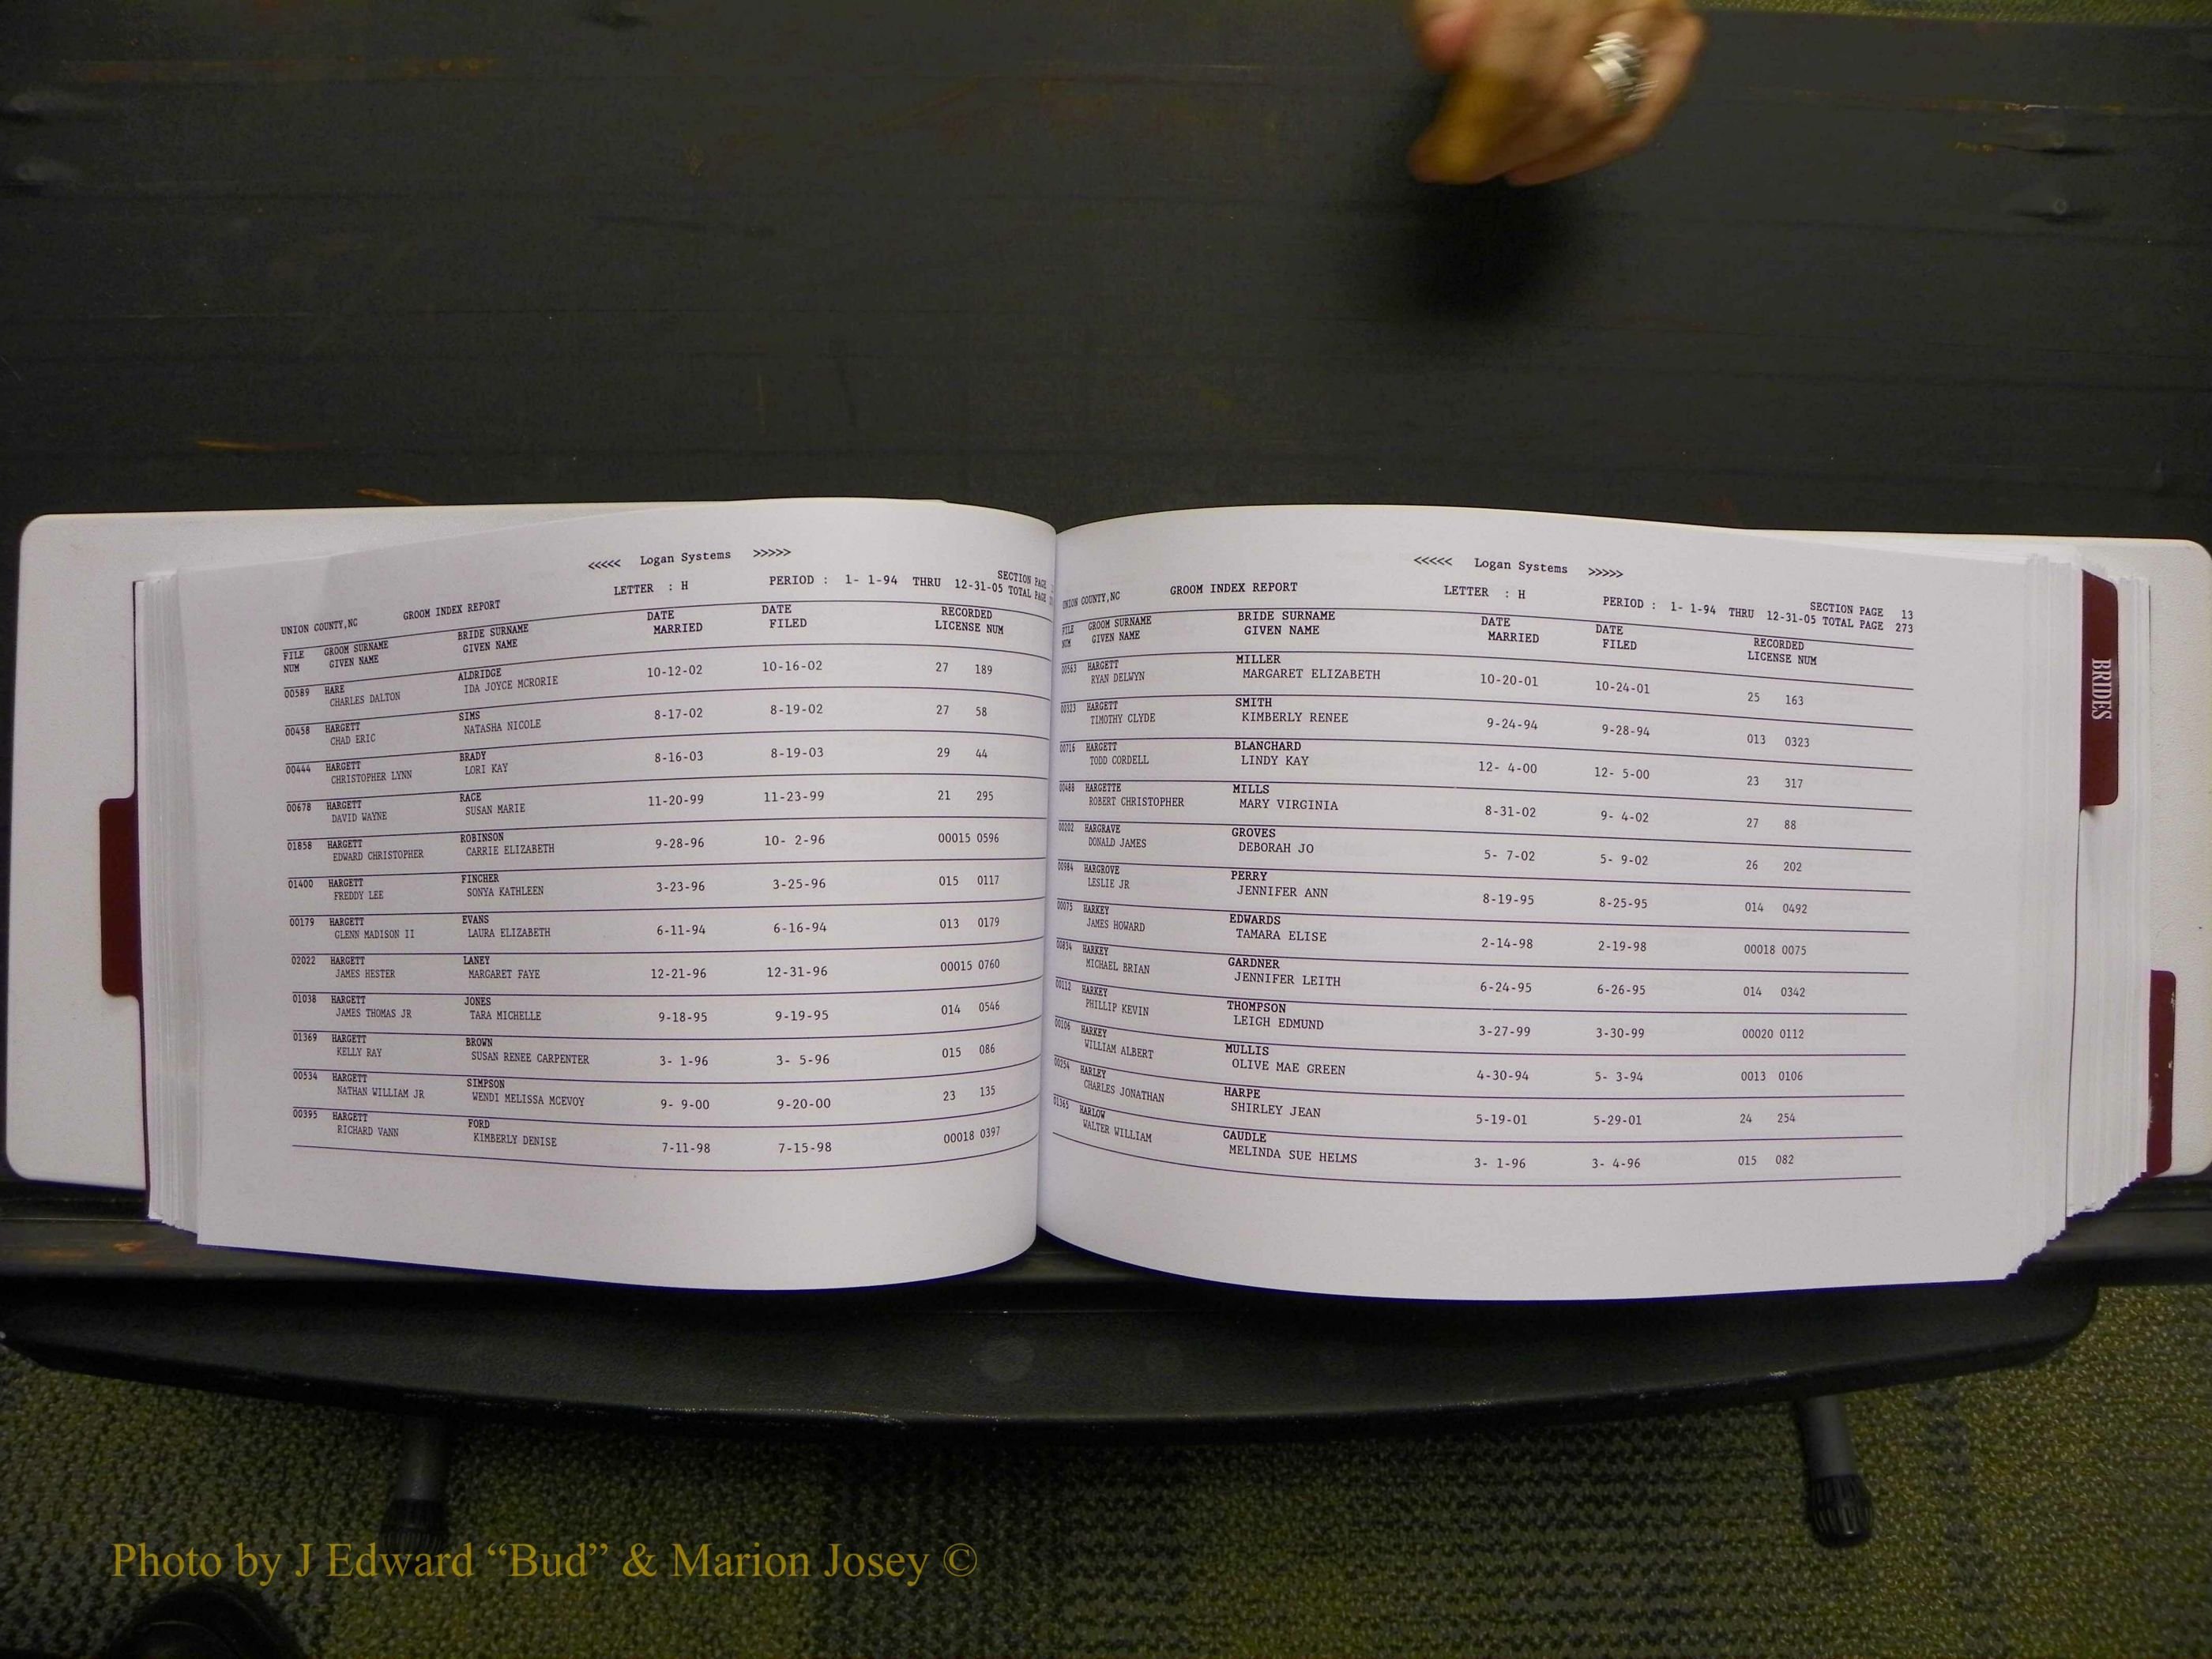 <<<<< Logan Systems >>>>>
UNION COUNTY,NC GROOM INDEX REPORT LETTER : H PERIOD : 1- 1-94 THRU 12-31-05
SECTION PAGE
TOTAL PAGE
FILE GROOM SURNAME BRIDE SURNAME DATE DATE RECORDED
NUM GIVEN NAME GIVEN NAME MARRIED FILED LICENSE NUM
00589 HARE ALDRIDGE 10-12-02 10-16-02 27 189
CHARLES DALTON IDA JOYCE MCRORIE
00458 HARGETT SIMS 8-17-02 8-19-02 27 58
CHAD ERIC NATASHA NICOLE
00444 HARGETT BRADY 8-16-03 8-19-03 29 44
CHRISTOPHER LYNN LORI KAY
00678 HARGETT RACE 11-20-99 11-23-99 21 295
DAVID WAYNE SUSAN MARIE
01858 HARGETT ROBINSON 9-28-96 10- 2-96 00015 0596
EDWARD CHRISTOPHER CARRIE ELIZABETH
01400 HARGETT FINCHER 3-23-96 3-25-96 015 0117
FREDDY LEE SONYA KATHLEEN
00179 HARGETT EVANS 6-11-94 6-16-94 013 0179
GLENN MADISON II LAURA ELIZABETH
02022 HARGETT LANEY 12-21-96 12-31-96 00015 0760
JAMES HESTER MARGARET FAYE
01038 HARGETT JONES 9-18-95 9-19-95 014 0546
JAMES THOMAS JR TARA MICHELLE
01369 HARGETT BROWN 3- 1-96 3- 5-96 015 086
KELLY RAY SUSAN RENEE CARPENTER
00534 HARGETT SIMPSON 9- 9-00 9-20-00 23 135
NATHAN WILLIAM JR WENDI MELISSA MCEVOY
00395 HARGETT FORD 7-11-98 7-15-98 00018 0397
RICHARD VANN KIMBERLY DENISE
<<<<< Logan Systems >>>>>
UNION COUNTY,NC GROOM INDEX REPORT LETTER : H PERIOD : 1- 1-94 THRU 12-31-05
SECTION PAGE 13
TOTAL PAGE 273
FILE GROOM SURNAME BRIDE SURNAME DATE DATE RECORDED
NUM GIVEN NAME GIVEN NAME MARRIED FILED LICENSE NUM
00563 HARGETT MILLER 10-20-01 10-24-01 25 163
RYAN DELWYN MARGARET ELIZABETH
00323 HARGETT SMITH 9-24-94 9-28-94 013 0323
TIMOTHY CLYDE KIMBERLY RENEE
00716 HARGETT BLANCHARD 12- 4-00 12- 5-00 23 317
TODD CORDELL LINDY KAY
00488 HARGETTE MILLS 8-31-02 9- 4-02 27 88
ROBERT CHRISTOPHER MARY VIRGINIA
00202 HARGRAVE GROVES 5- 7-02 5- 9-02 26 202
DONALD JAMES DEBORAH JO
00984 HARGROVE PERRY 8-19-95 8-25-95 014 0492
LESLIE JR JENNIFER ANN
00075 HARKEY EDWARDS 2-14-98 2-19-98 00018 0075
JAMES HOWARD TAMARA ELISE
00834 HARKEY GARDNER 6-24-95 6-26-95 014 0342
MICHAEL BRIAN JENNIFER LEITH
00112 HARKEY THOMPSON 3-27-99 3-30-99 00020 0112
PHILLIP KEVIN LEIGH EDMUND
00106 HARKEY MULLIS 4-30-94 5- 3-94 0013 0106
WILLIAM ALBERT OLIVE MAE GREEN
00254 HARLEY HARPE 5-19-01 5-29-01 24 254
CHARLES JONATHAN SHIRLEY JEAN
01365 HARLOW CAUDLE 3- 1-96 3- 4-96 015 082
WALTER WILLIAM MELINDA SUE HELMS
BRIDES
Photo by J Edward “Bud” & Marion Josey ©